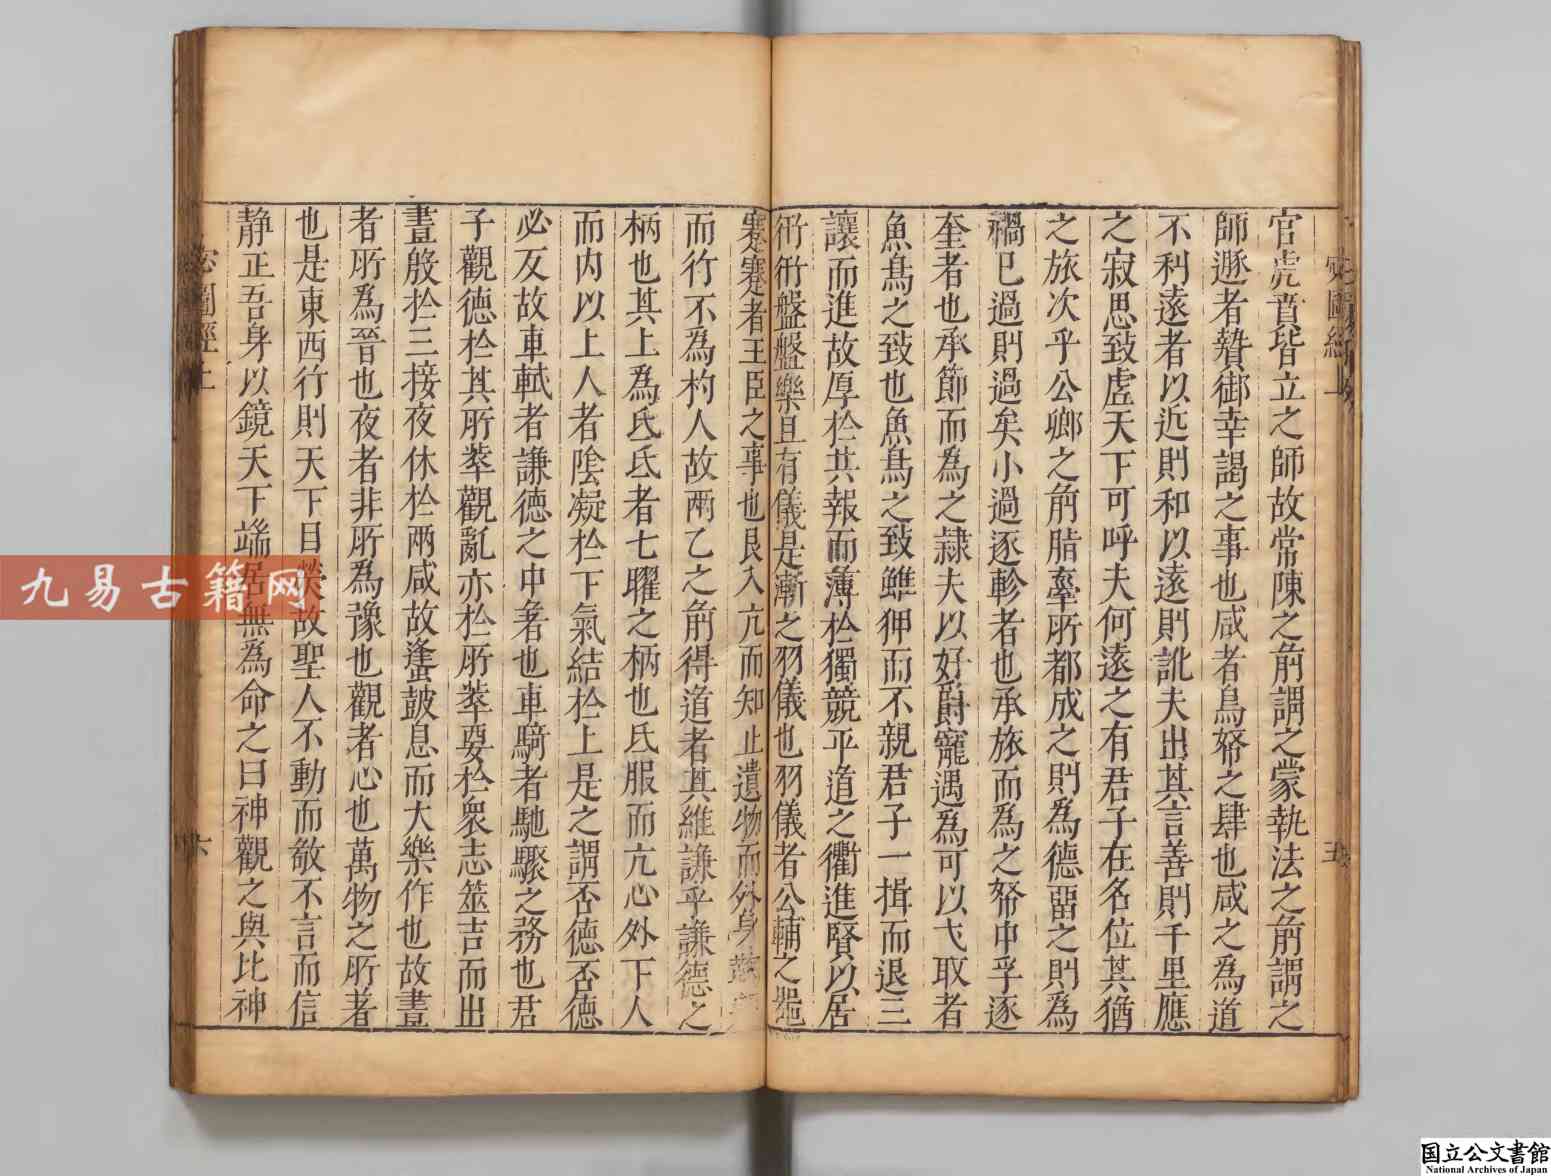 官虎賁皆立之師故常陳之前謂之蒙執法之前謂之
師遯者贊御幸謁之事也咸者鳥帑之肆也咸之為道
不利遠者以近則和以遠則訛夫出其言善則千里應
之寂思致虛天下可呼夫何遠之有君子在名位其猶
之旅次乎公鄉之前脂牽所都成之則為德畱之則為
禍已過則過矣小過逐軫者也承旅而為之帑中孚逐
奎者也承節而為之隷夫以好爵寵遇為可以弋取者
魚鳥之致也魚鳥之致雖狎而不親君子一揖而退三
讓而進故厚於共報而薄於獨競平道之衢進賢以居
衎衎盤盤樂且有儀是漸之羽儀也羽儀者公輔之
蹇蹇者王臣之事也艮入亢而知止遺物而外身
而行不為杓人故兩乙之前得道者其維謙乎謙德之
柄也其上為氐氐者七曜之柄也氐服而亢心外下人
而内以上人者陰凝於下氣結於上是之謂否德否德
必反故車軾者謙德之中㚟也車騎者馳驟之務也君
子觀德於其所萃觀亂亦於所萃娶於衆志筮吉而出
晝般於三接夜休於兩咸故逢蚉皷息而大樂作也故晝
者所為晉也夜者非所為豫也觀者心也萬物之所著
也是東西行則天下目熒故聖人不動而敬不言而信
静正吾身以鏡天下端居無為命之曰神觀之與比神
五
六
九易古籍网
国立公文書館
National Archives of Japan